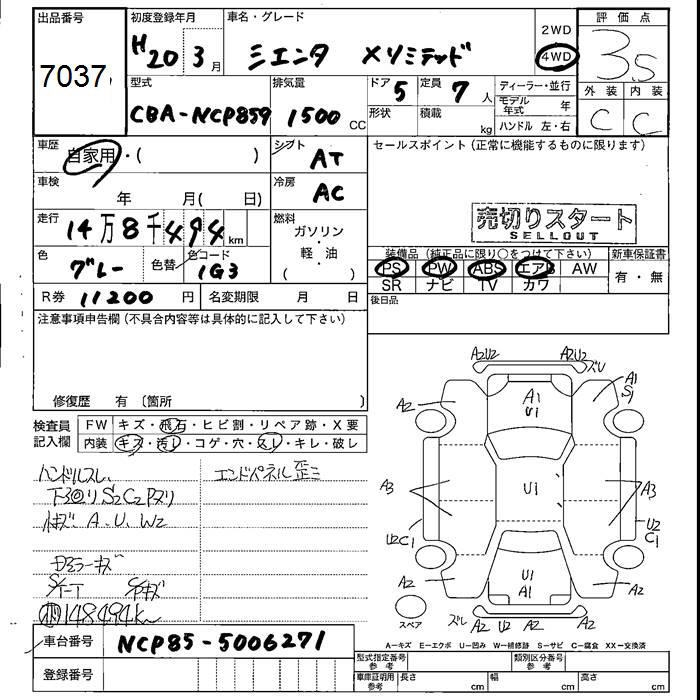 出品番号
7037
初度登録年月
H20 3月
車名・グレード
シエンタ Xリミテッド
2WD
4WD
評価点
3.5
外装 内装
C C
型式
CBA-NCP85G
排気量
1500 CC
ドア 5
形状
定員 7 人
積載 kg
ディーラー・並行
モデル年式 年
ハンドル 左・右
車歴
自家用・( )
シフト
AT
車検
年 月( 日)
冷房
AC
走行
14万8千494km
燃料
ガソリン・軽油
( )
色
グレー
色替
色コード
1G3
R券 11200 円
名変期限 月 日
セールスポイント(正常に機能するものに限ります)
売切りスタート
SELLOUT
装備品(純正品に限り○をつけて下さい)
PS PW ABS エアB AW
SR ナビ TV カワ
新車保証書
有・無
後日品
注意事項申告欄(不具合内容等は具体的に記入して下さい)
修復歴 有〔箇所 〕
検査員記入欄
FW キズ・飛石・ヒビ割・リペア跡・X要
内装 キズ・汚れ・コゲ・穴・スレ・キレ・破レ
ハンドルスレ,
下回りS2C2Pズリ
A.U.W2
ミラーキズ
148494km
エンドパネル歪ミ
A2U2 A2U2 ズリ
A2 A1 U1 A1 S1
A3 U1 A3
U2 C1 U2 C1
A2 U1 A1 A2
ズレ A2 U2 A2 A2
スペア
A-キズ E-エクボ U-凹み W-補修跡 S-サビ C-腐食 XX-交換済
車台番号
NCP85-5006271
登録番号
型式指定番号 参考
類別区分番号 参考
車庫証明用 参考
長さ cm
幅 cm
高さ cm